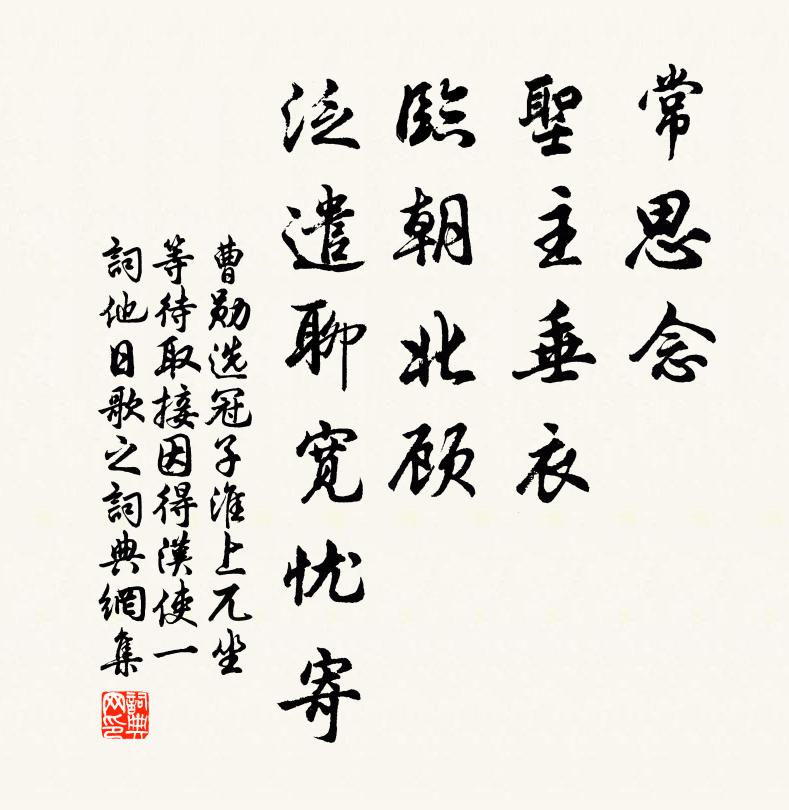 常思念
聖主垂衣
臨朝北顾
泛遣聊寬忧寄
曹勋选冠子淮上兀坐
等待取接因得漢使一
詞他日歌之詞典網集
詞典
网印